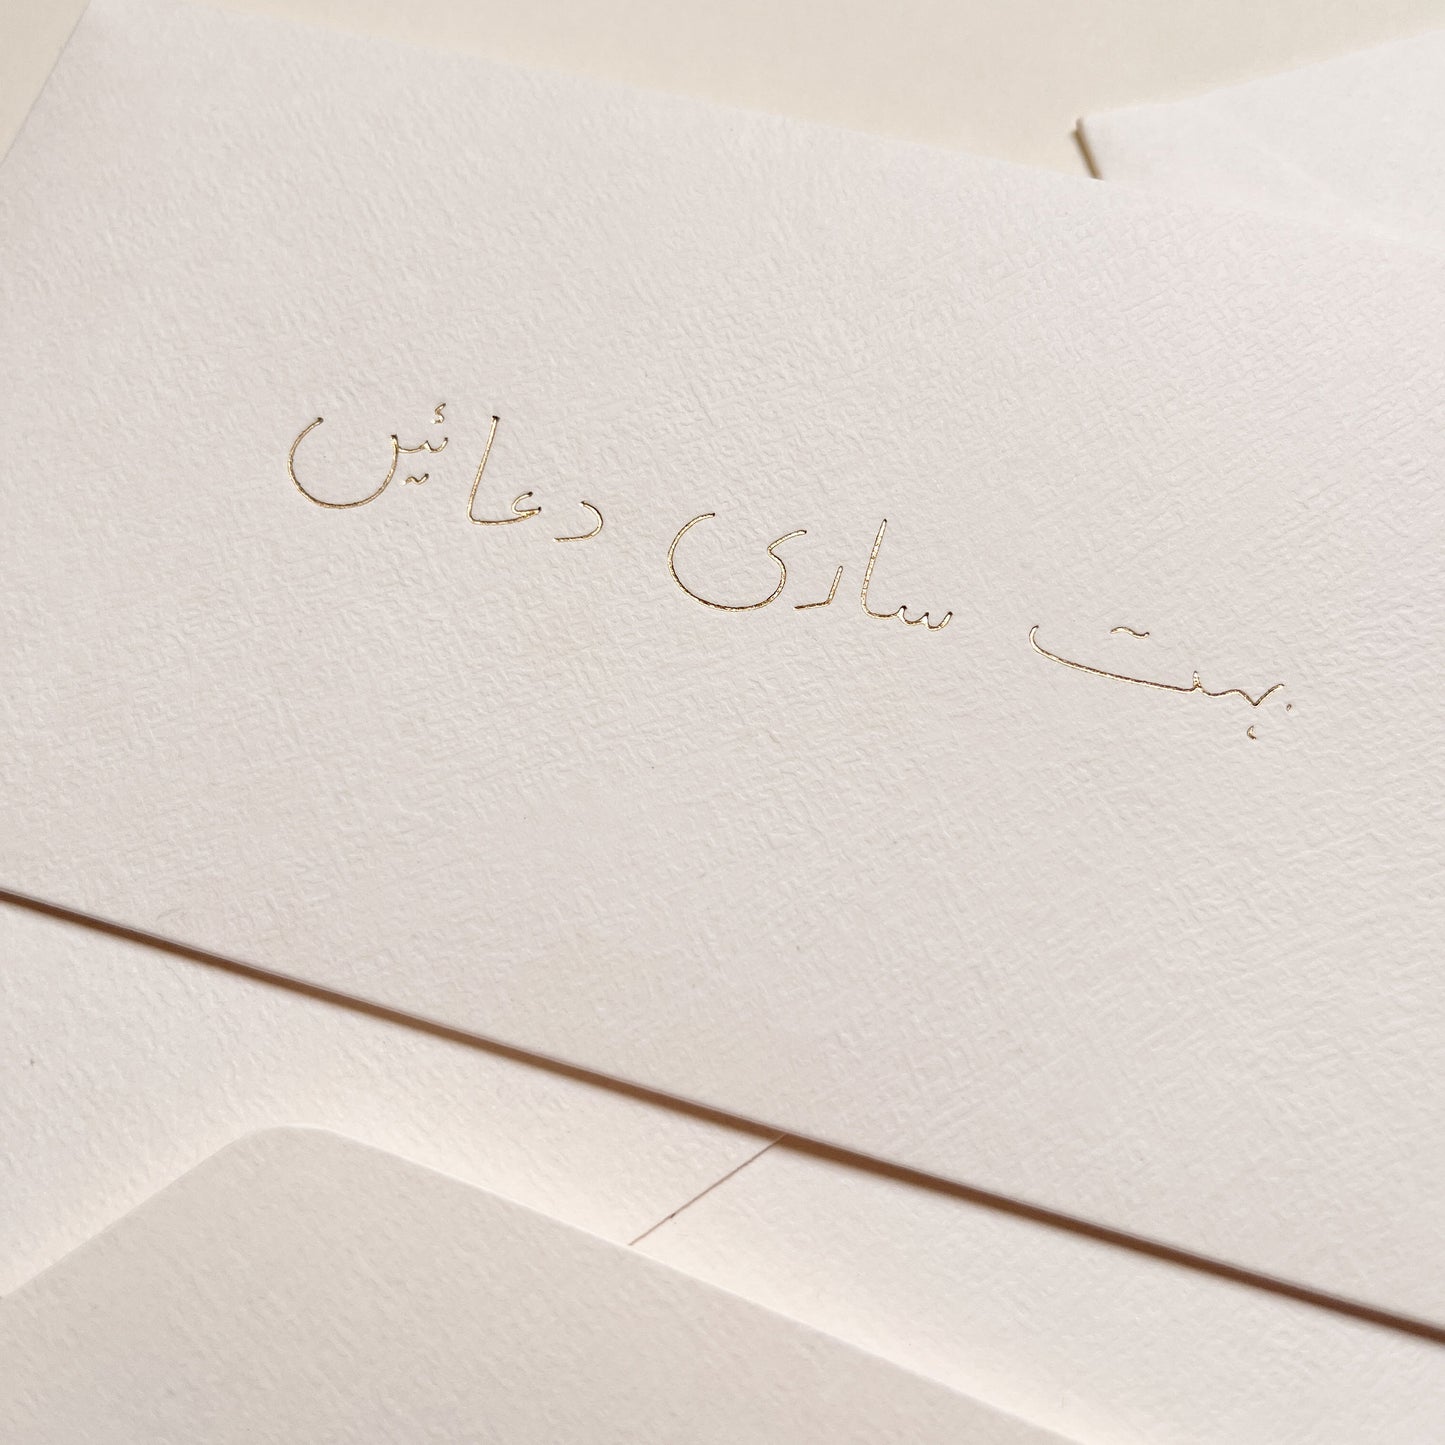 بہت ساری دعائیں